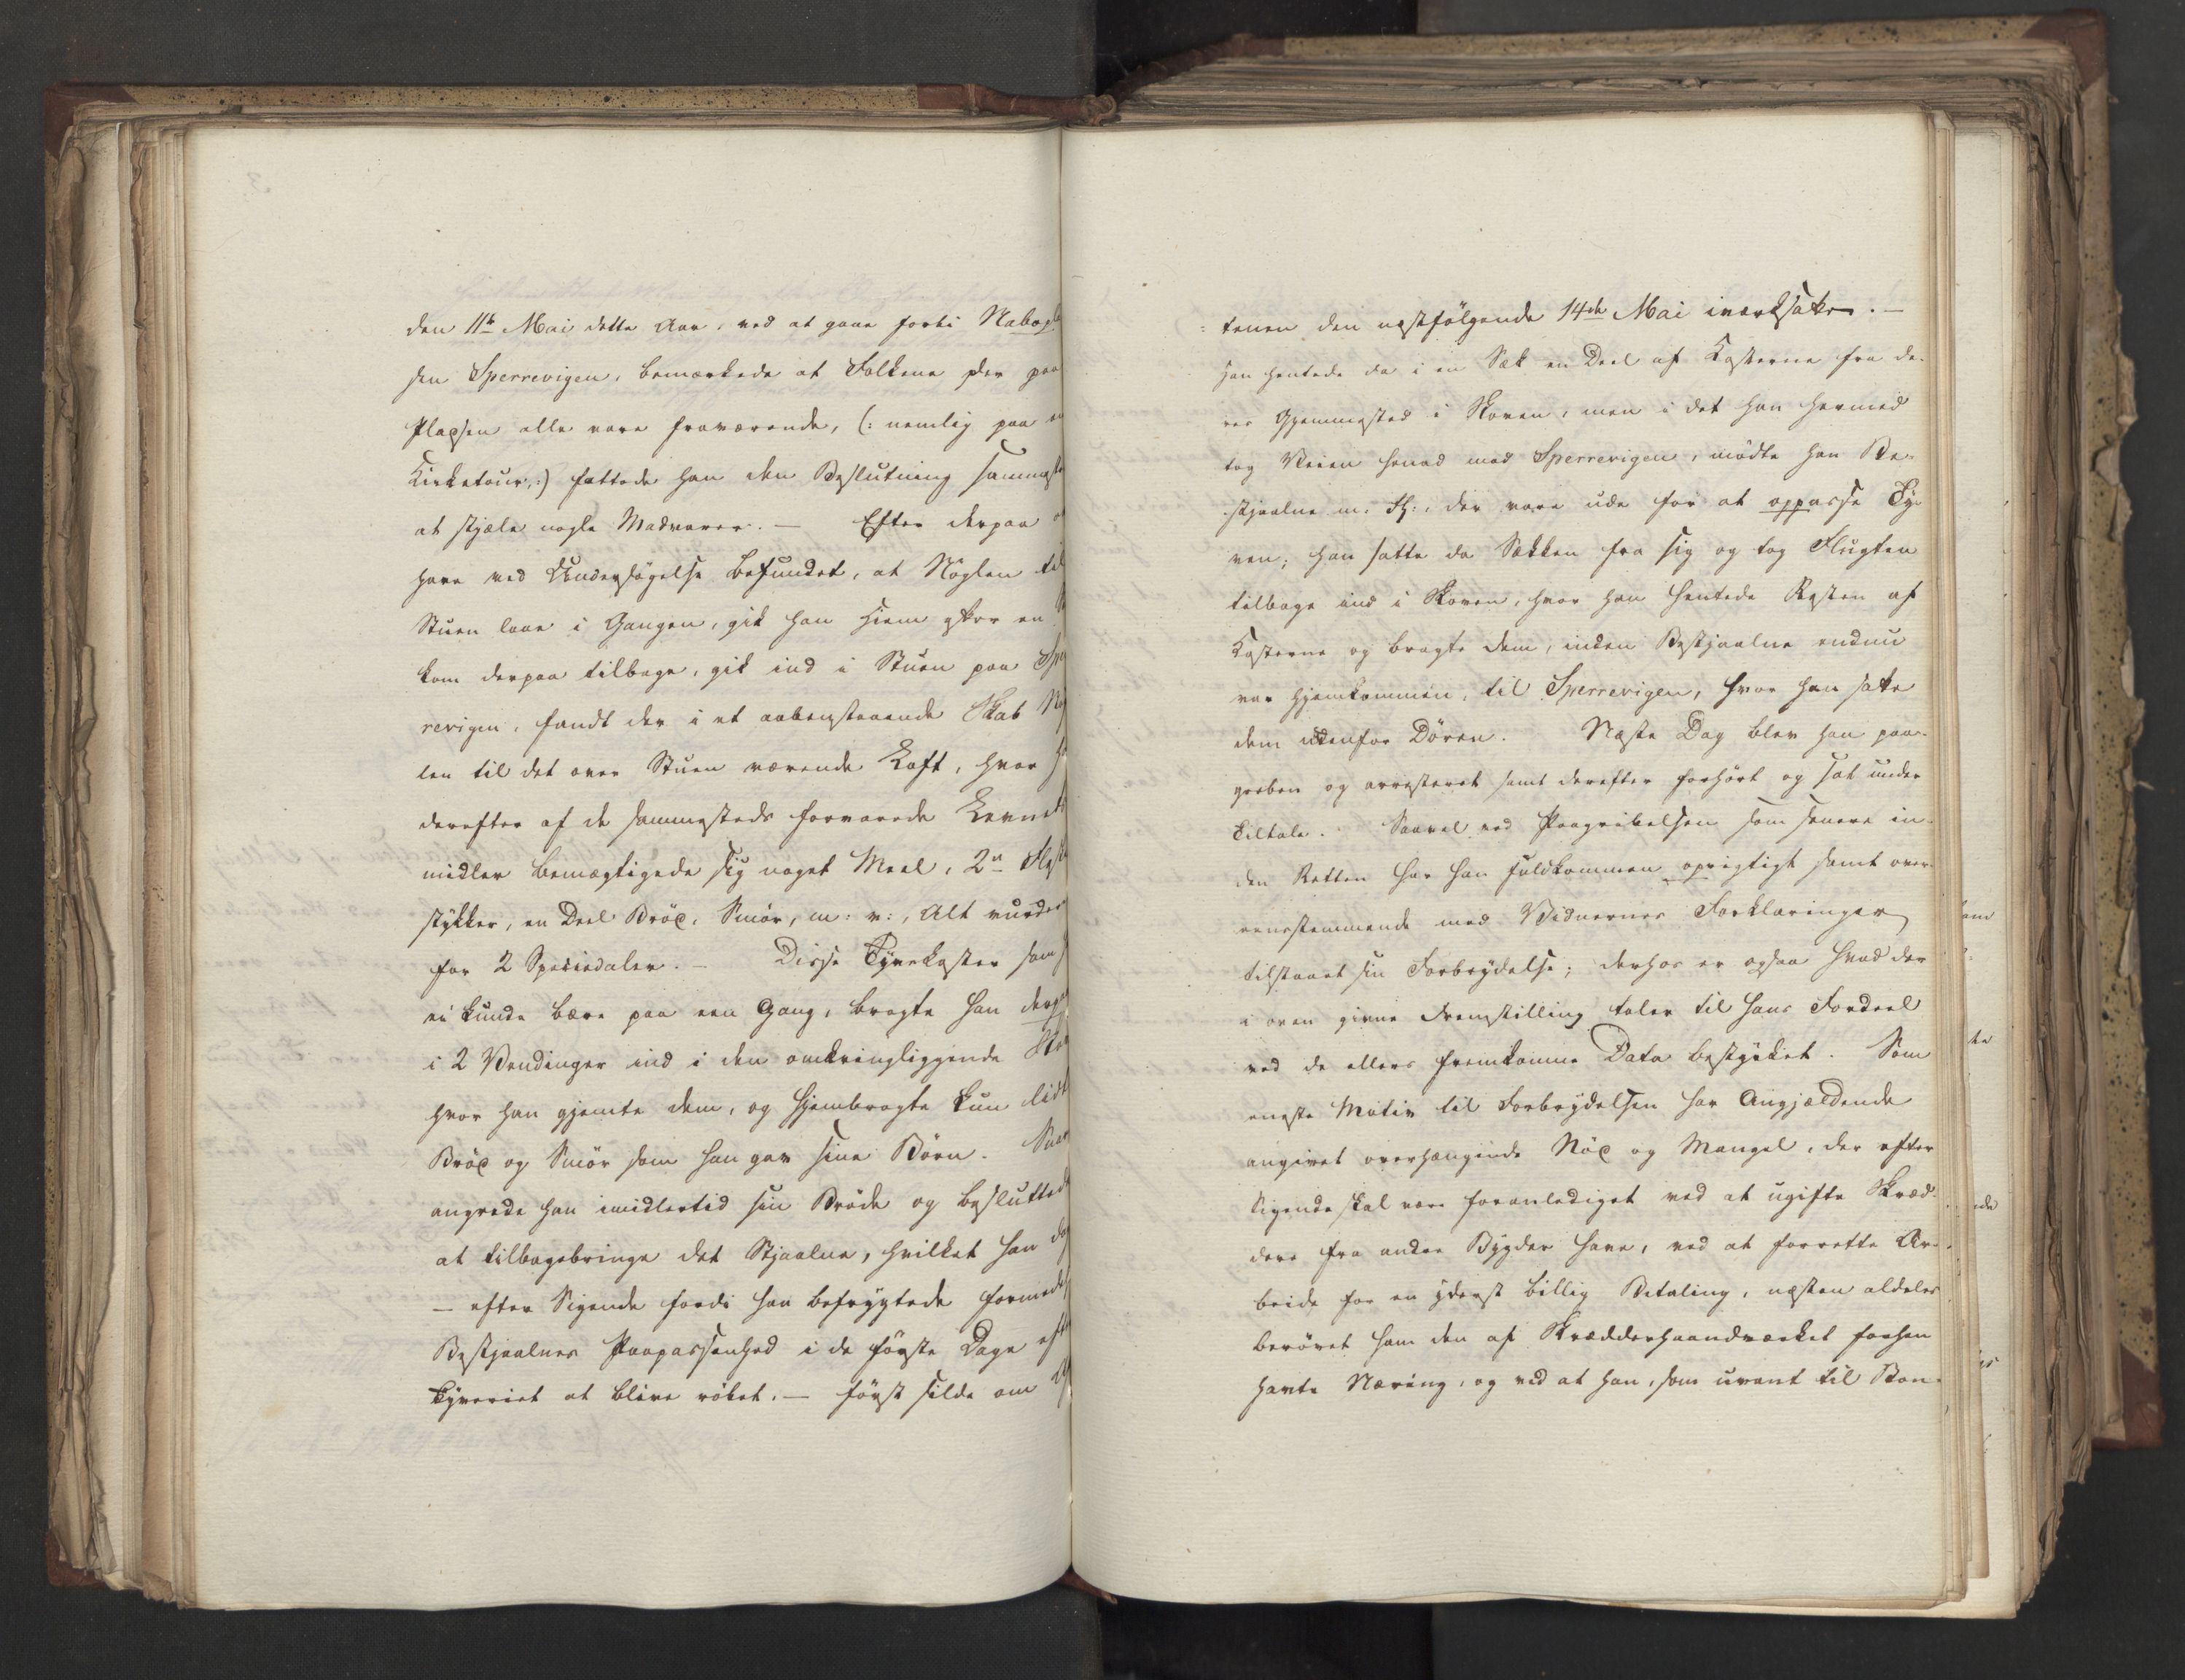 den 11te Mai dette Aar, ved at gaae forbi Nabopla
sen Sperrevigen, bemærkede at Folkene der paa
Pladsen alle vare fraværende, (: nemlig paa en
Kirketour, :) fattede han den Beslutning sammest
at stjæle nogle Madvarer. — Efter derpaa at
have ved Undersøgelse befundet, at Nøglen til
Stuen laae i Gangen, gik han hjem efter en
kom derpaa tilbage, gik ind i Stuen paa Sper
revigen, fandt der i et aabenstaaende Skab Nøg
len til det over Stuen værende Loft, hvor ha
derefter af de sammesteds forvarede Levnets
midler bemægtigede sig noget Meel, 2de Flesk
stykker, en Deel Brød, Smør, m: v:, Alt vurder
for 2 Speciedaler. — Disse Tyvekoster som h
ei kunde bære paa een Gang, bragte han derpaa
i 2 Vendinger ind i den omkringliggende Skov
hvor han gjemte dem, og hjembragte kun lidt
Brød og Smør som han gav sine Børn. Snart
angrede han imidlertid sin Brøde og besluttede
at tilbagebringe det Stjaalne, hvilket han dog
— efter Sigende fordi han befrygtede formedelst
Bestjaalnes Paapassenhed i de første Dage efter
Tyveriet at blive røbet. — først silde om Af
tenen den næstfølgende 14de Mai iværksatte. —
Han hentede da i en Sæk en Deel af Kosterne fra de-
res Gjemmested i Skoven, men i det han hermed
tog Veien henad mod Sperrevigen, mødte han Be-
stjaalne m. Fl:, der vare ude for at oppasse Ty-
ven; han satte da Sækken fra sig og tog Flugten
tilbage ind i Skoven, hvor han hentede Resten af
Kosterne og bragte dem, inden Bestjaalne endnu
var hjemkommen, til Sperrevigen, hvor han satte
dem udenfor Døren. Næste Dag blev han paa-
greben og arresteret samt derefter forhørt og sat under
Tiltale. Saavel ved Paagribelsen som senere in-
den Retten har han fuldkommen oprigtigt samt over-
eensstemmende med Vidnernes Forklaringer
tilstaaet sin Forbrydelse; derhos er ogsaa hvad der
i oven givne Fremstilling taler til hans Fordeel
ved de ellers fremkomne Data bestyrket. Som
eneste Motiv til Forbrydelsen har Angjældende
angivet overhængende Nød og Mangel, der efter
Sigende skal være foranlediget ved at ugifte Skræd-
dere fra andre Bygder have, ved at forrette Ar-
beide for en yderst billig Betaling, næsten aldeles
berøvet ham den af Skrædderhaandværket forhen
havte Næring, og ved at han, som uvant til Bon-